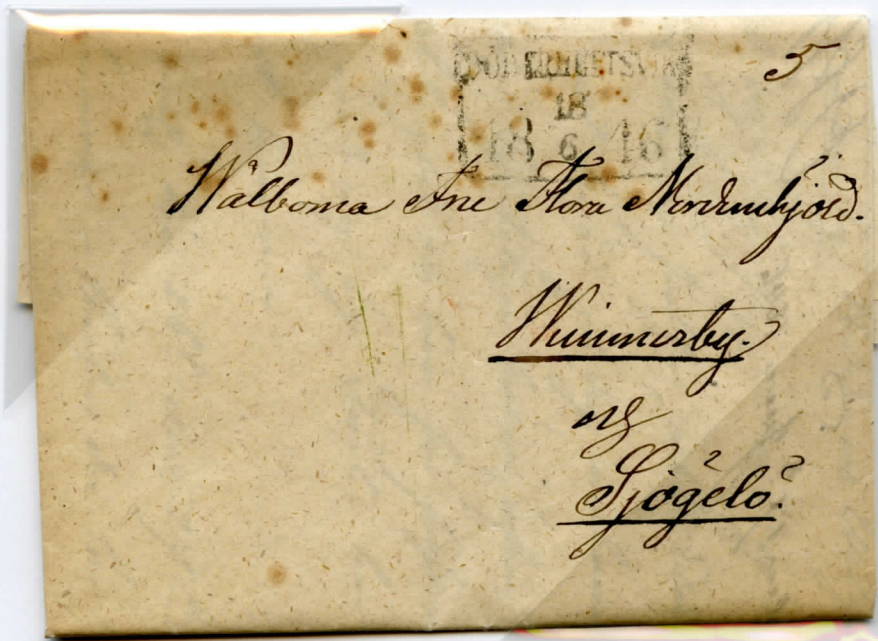 5
18
18 6 46
Wälborna Fru Flora Nordenskjöld.
Wimmerby.
och
Sjögelö.